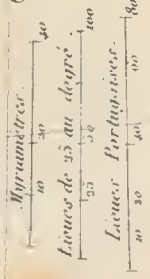 Myriamètres.
10 20 40
Lieues de 25 au degré.
25 50 100
Lieues Portugaises.
10 20 40 60 80